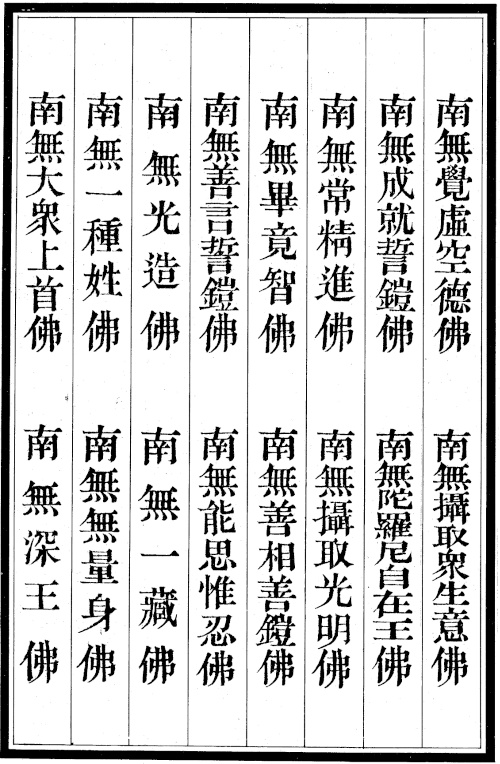 南無覺虛空德佛　南無攝取衆生意佛
南無成就誓鎧佛　南無陀羅尼自在王佛
南無常精進佛　南無攝取光明佛
南無畢竟智佛　南無善相善鎧佛
南無善言誓鎧佛　南無能思惟忍佛
南無光造佛　南無一藏佛
南無一種姓佛　南無無量身佛
南無大衆上首佛　南無深王佛